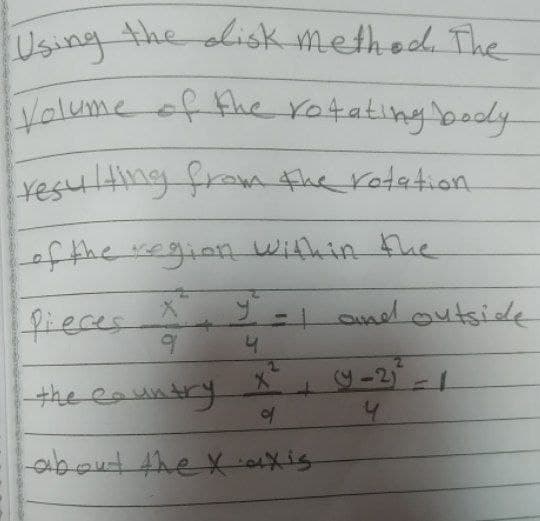 Using the disk method. The
Volume of the rotating body
resulting from the rotation
of the region within the
Pieces x²/9 + y²/4 = 1 and outside
the country x²/9 + (y-2)²/4 = 1
about the x axis